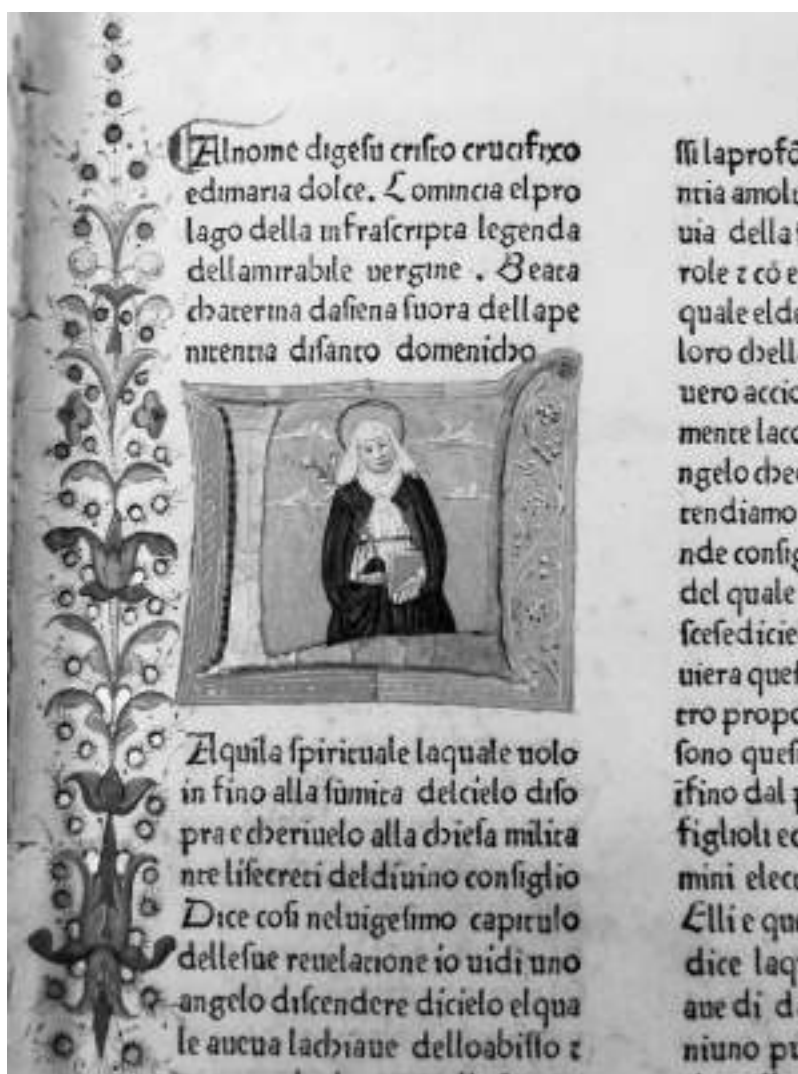 Al nome digesu cristo crucifixo
edimaria dolce. Comincia elpro
lago della infrascripta legenda
dellamirabile uergine. Beata
chaterina dasiena suora dellape
nitentia disanto domenicho
Aquila spirituale laquale uolo
in fino alla sūmita delcielo diso
pra e cheriuelo alla chiesa milita
nte lisecreti deldiuino consiglio
Dice cosi neluigesimo capitulo
dellesue reuelatione io uidi uno
angelo discendere dicielo elqua
le aueua lachiaue delloabisso ⁊
ssi laprofō
ntia amolt
uia della
role ⁊ cō e
quale elde
loro chell
uero accio
mente lacc
ngelo chec
rendiamo
nde consig
del quale
scesedicie
uiera ques
tro propo
sono ques
īfino dal p
figlioli ec
mini elect
Elli e que
dice laq
aue di d
niuno pu